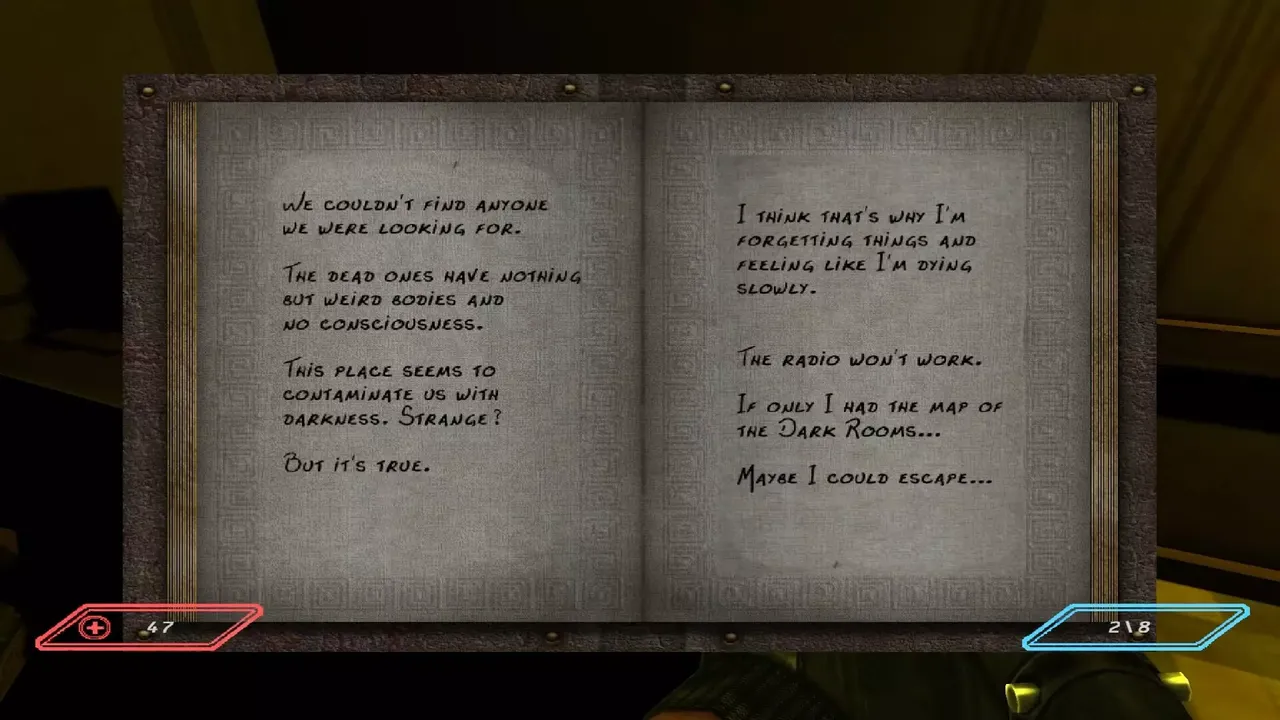 We couldn't find anyone
we were looking for.
The dead ones have nothing
but weird bodies and
no consciousness.
This place seems to
contaminate us with
darkness. Strange?
But it's true.
I think that's why I'm
forgetting things and
feeling like I'm dying
slowly.
The radio won't work.
If only I had the map of
the Dark Rooms...
Maybe I could escape...
47
2\8